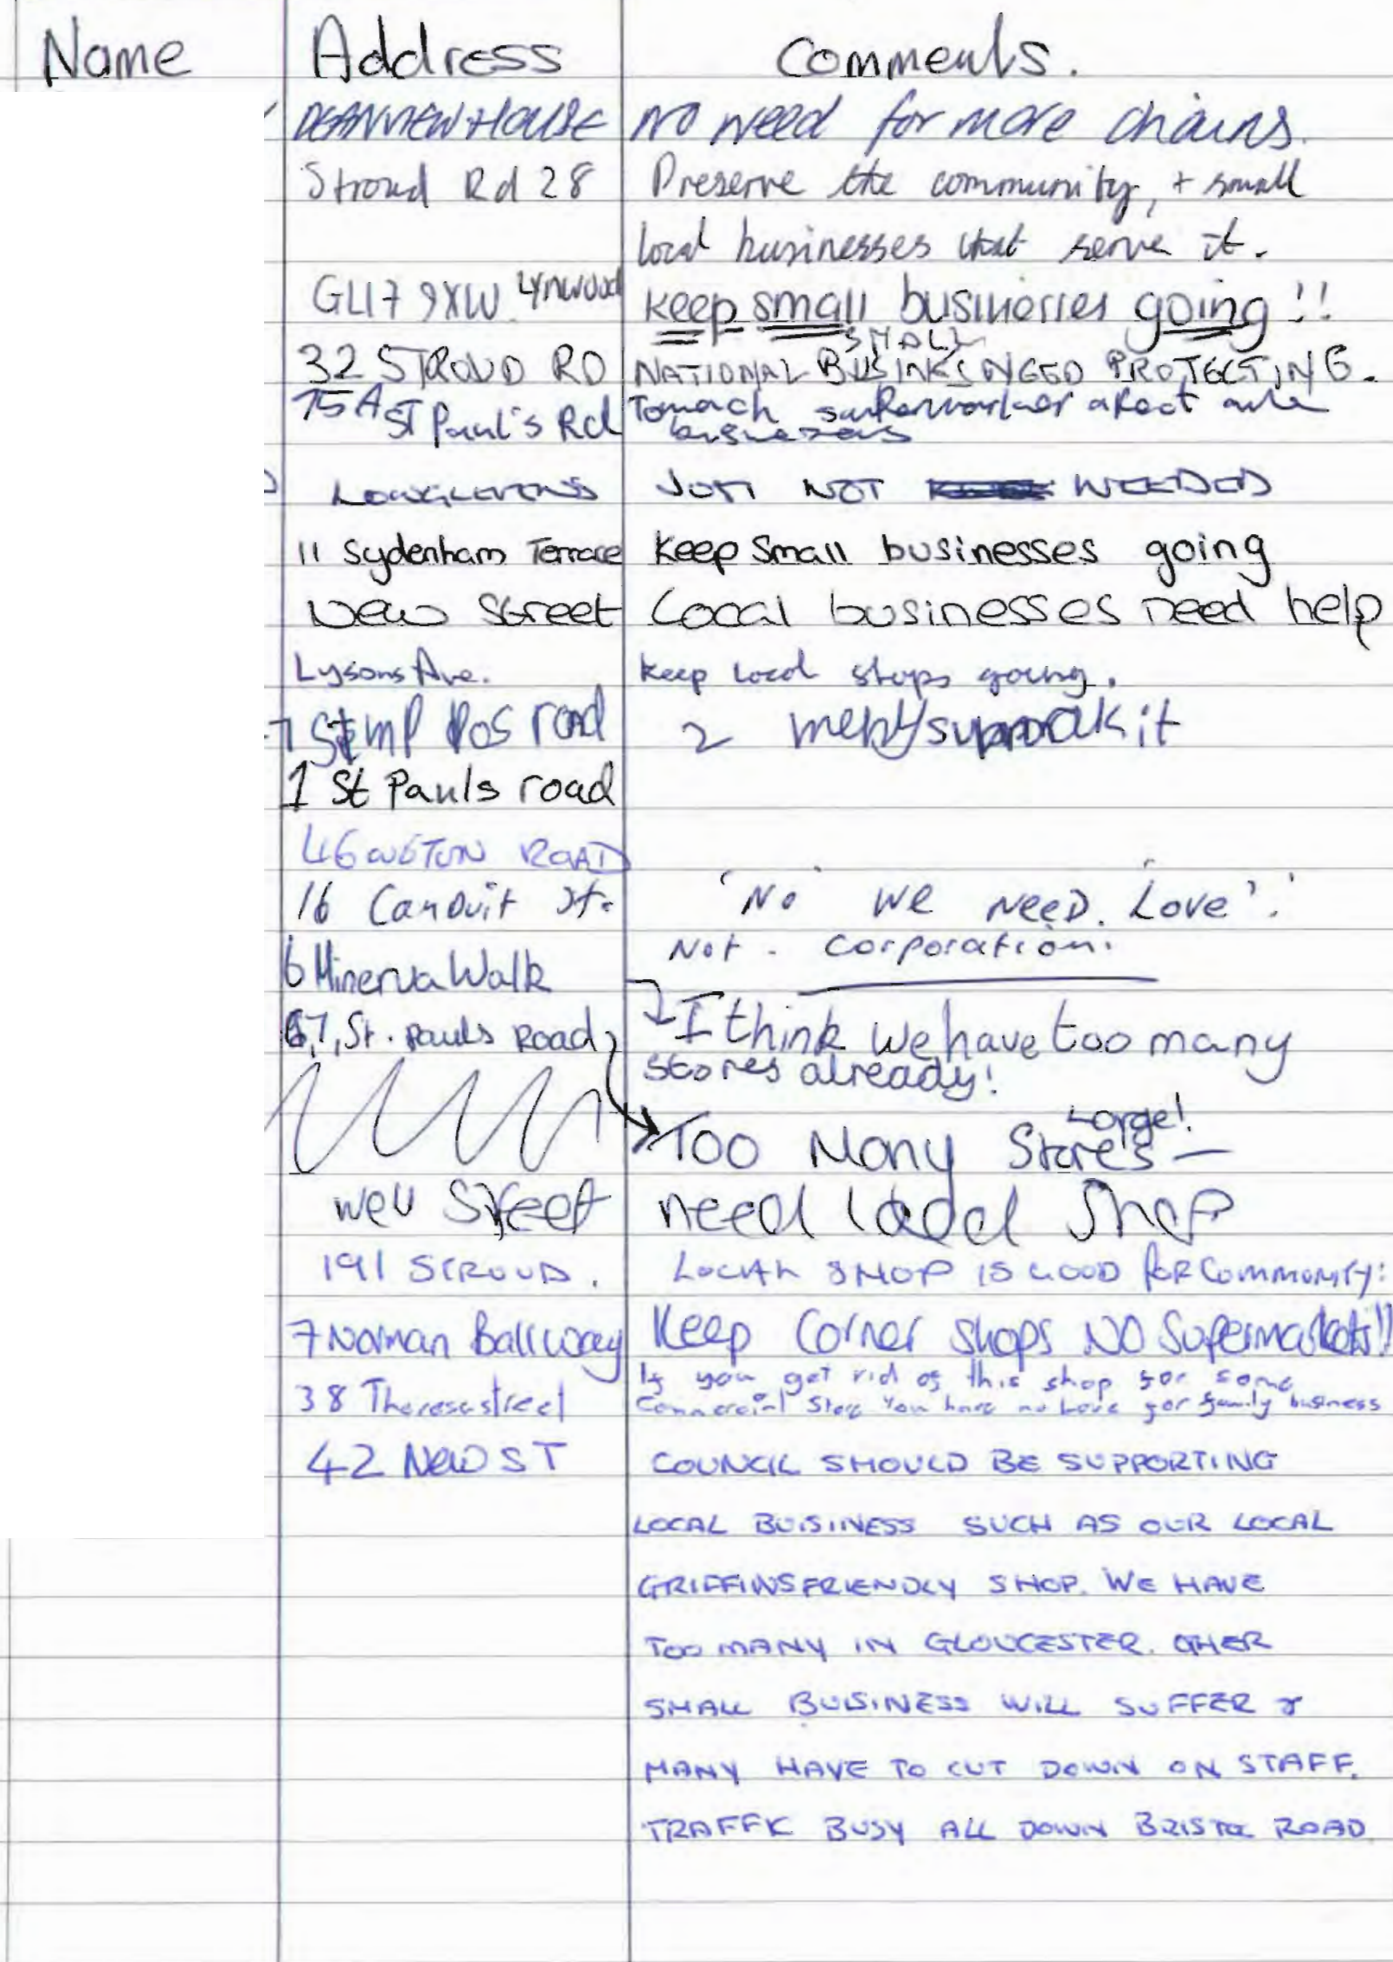 Name Address Comments.
DEANVIEW HOUSE NO NEED for more chains.
Stroud Rd 28 Preserve the community, + small
local businesses that serve it.
GL17 9XW Lynwood keep small businesses going!!
SMALL
32 STROUD RD NATIONAL BUSINKS NEED PROTECTING.
75A St Paul's Rd
businesses
LONGLEVENS JUST NOT NEEDED
11 Sydenham Terrace Keep Small businesses going
New Street Local businesses need help
Lysons Ave. Keep local shops going.
road 2 it
1 St Pauls road
46 ROAD
16 Conduit St. 'No we NEED. Love'.'
Not - Corporation.
6 Minerva Walk
I think we have too many
67, St. Pauls Road stores already!
Large!
Too Many Stores —
Well Street need local Shop
191 STROUD. LOCAL SHOP IS GOOD FOR COMMUNITY:
7 Norman Ball way Keep Corner shops NO Supermarkets!!
If you get rid of this shop for some
38 Theresa street Commercial Store You have no Love for family business
42 New ST COUNCIL SHOULD BE SUPPORTING
LOCAL BUISINESS SUCH AS OUR LOCAL
GRIFFINS FRIENDLY SHOP. WE HAVE
TOO MANY IN GLOUCESTER. OTHER
SMALL BUISINESS WILL SUFFER &
MANY HAVE TO CUT DOWN ON STAFF.
TRAFFIC BUSY ALL DOWN BRISTOL ROAD